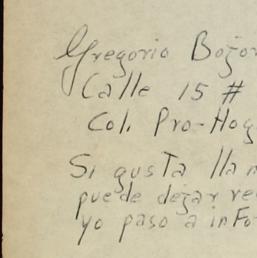 Gregorio Bojor
Calle 15 #
Col. Pro-Hog
Si gusta llam
puede dejar re
yo paso a info